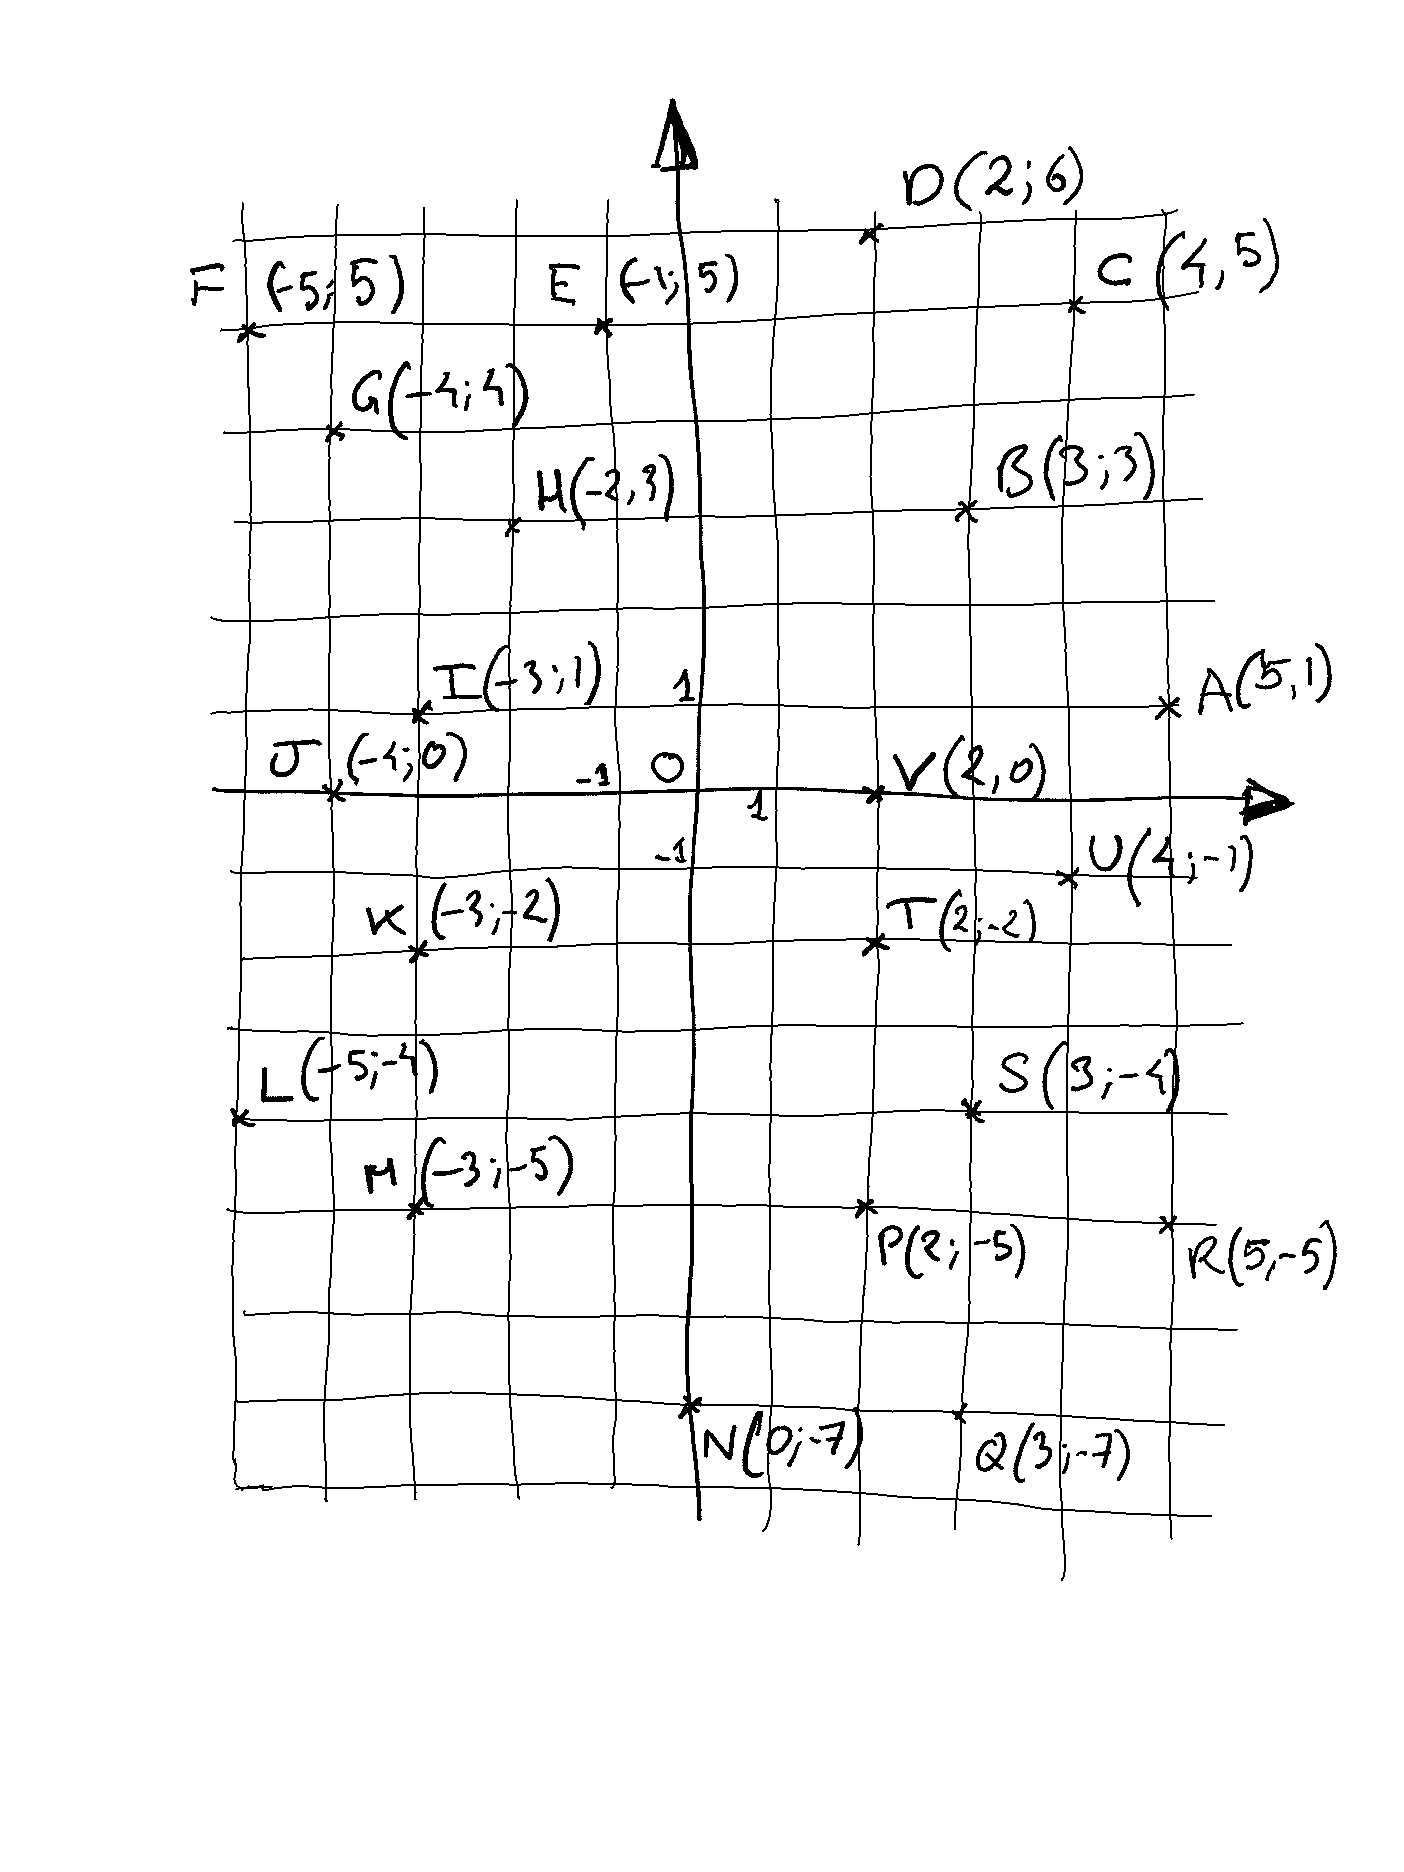 D(2;6)
F (-5;5) E (-1;5) C (4,5)
G(-4;4)
H(-2,3) B(3;3)
I(-3;1) 1 A(5,1)
J (-4;0) -1 O 1 V(2,0)
-1 U(4;-1)
K (-3;-2) T(2;-2)
L(-5;-4) S(3;-4)
M (-3;-5)
P(2;-5) R(5,-5)
N(0;-7) Q(3;-7)